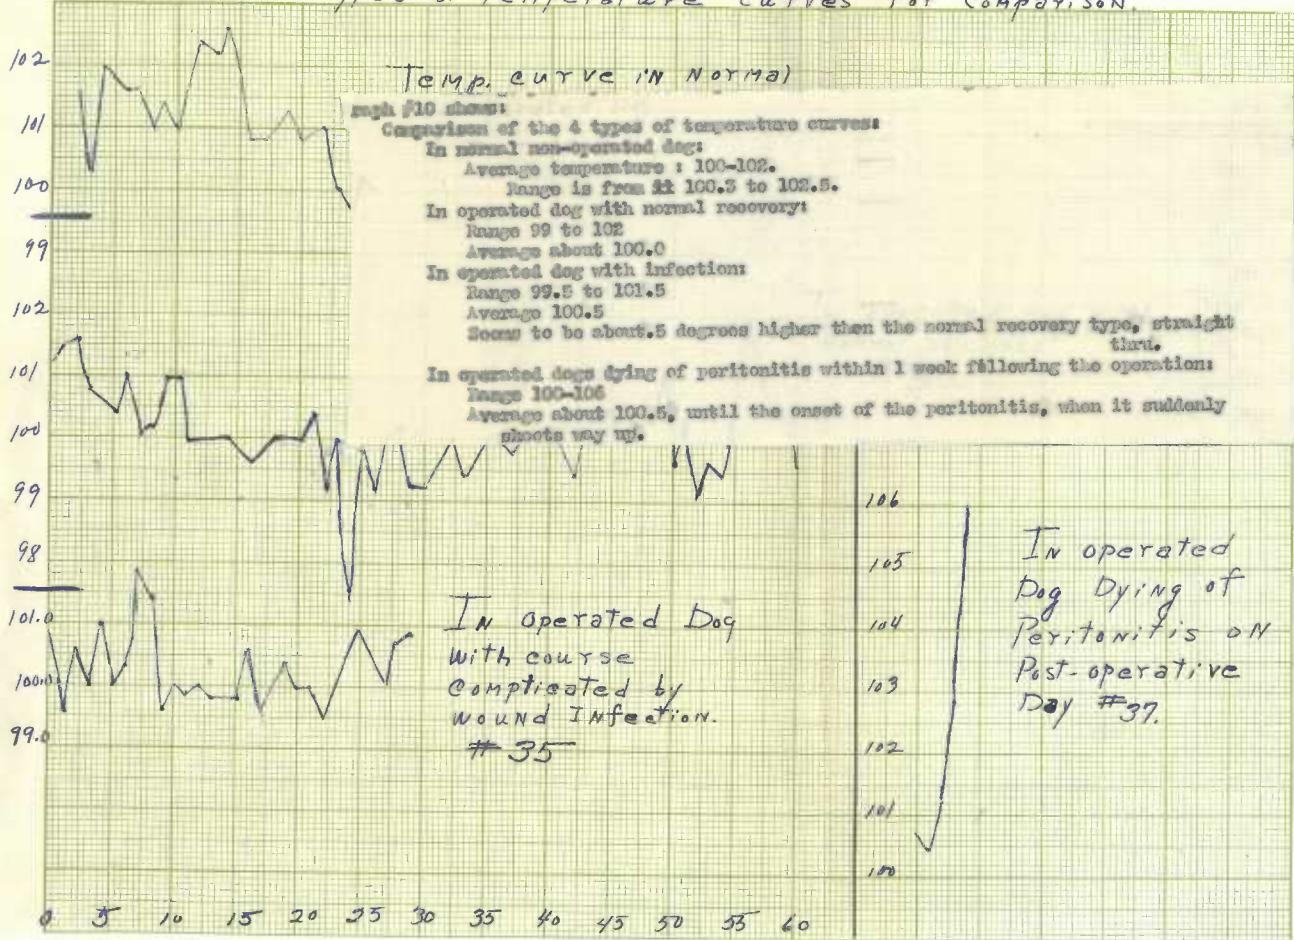 Temperature Curves for Comparison.
Temp. curve in Normal
raph #10 shows:
Comparison of the 4 types of temperature curves:
In normal non-operated dog:
Average temperature : 100-102.
Range is from 100.3 to 102.5.
In operated dog with normal recovery:
Range 99 to 102
Average about 100.0
In operated dog with infection:
Range 99.5 to 101.5
Average 100.5
Seems to be about.5 degrees higher then the normal recovery type, straight
thru.
In operated dogs dying of peritonitis within 1 week following the operation:
Range 100-106
Average about 100.5, until the onset of the peritonitis, when it suddenly
shoots way up.
102
101
100
99
102
101
100
99
98
101.0
100.0
99.0
In operated Dog
with course
complicated by
wound Infection.
# 35
106
105
104
103
102
101
100
In operated
Dog Dying of
Peritonitis on
Post-operative
Day #37.
0 5 10 15 20 25 30 35 40 45 50 55 60